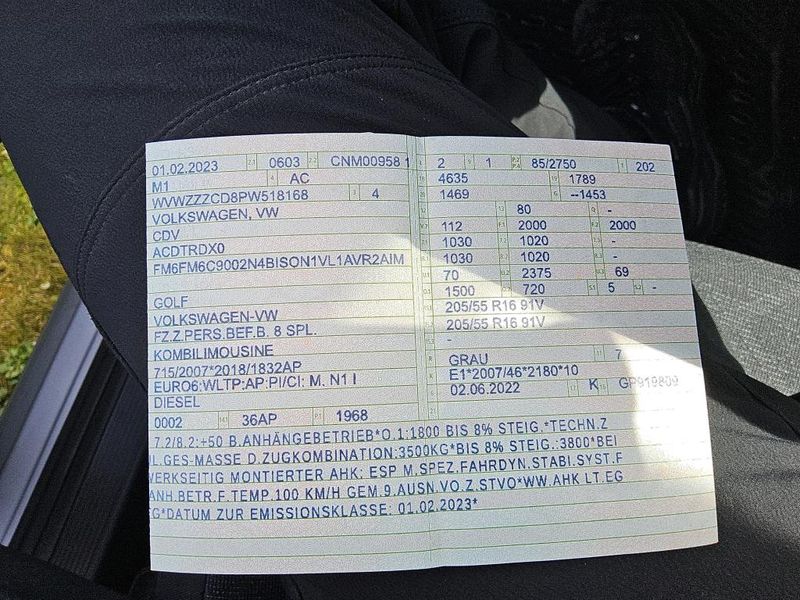 01.02.2023 0603 CNM00958 1
M1 AC
WVWZZZCD8PW518168 4
VOLKSWAGEN, VW
CDV
ACDTRDX0
FM6FM6C9002N4BISON1VL1AVR2AIM
GOLF
VOLKSWAGEN-VW
FZ.Z.PERS.BEF.B. 8 SPL.
KOMBILIMOUSINE
715/2007*2018/1832AP
EURO6:WLTP:AP:PI/CI: M, N1 I
DIESEL
0002 36AP 1968
2 1 85/2750 202
4635 1789
1469 --1453
80 -
112 2000 2000
1030 1020 -
1030 1020 -
70 2375 69
1500 720 5 -
205/55 R16 91V
205/55 R16 91V
-
GRAU 7
E1*2007/46*2180*10
02.06.2022 K GP919809
7.2/8.2:+50 B.ANHÄNGEBETRIEB*O.1:1800 BIS 8% STEIG.*TECHN.Z
UL.GES-MASSE D.ZUGKOMBINATION:3500KG*BIS 8% STEIG.:3800*BEI
WERKSEITIG MONTIERTER AHK: ESP M.SPEZ.FAHRDYN.STABI.SYST.F
ANH.BETR.F.TEMP.100 KM/H GEM.9.AUSN.VO.Z.STVO*WW.AHK LT.EG
EG*DATUM ZUR EMISSIONSKLASSE: 01.02.2023*